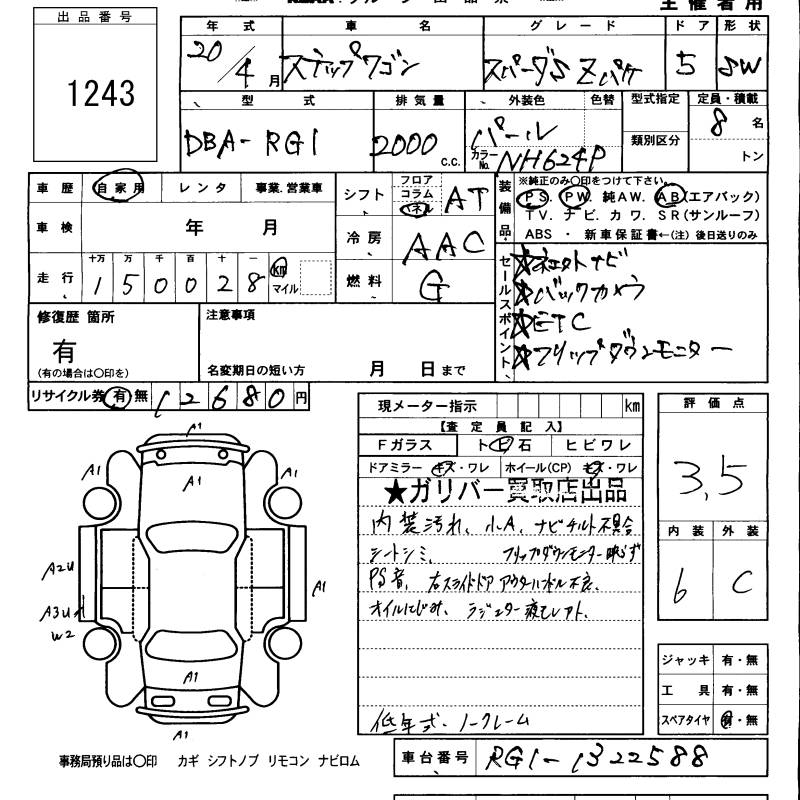 出品番号
1243
年式 車名 グレード ドア 形状
20/4月 ステップワゴン スパーダS Zパケ 5 SW
型式 排気量 外装色 色替 型式指定 定員・積載
DBA-RG1 2000c.c. パール 類別区分 8名
カラーNo. NH624P トン
車歴 自家用 レンタ 事業.営業車
車検 年 月
走行 十万 万 千 百 十 一
150028 km マイル
シフト フロア コラム パネル AT
冷房 AAC
燃料 G
装備品
※純正のみ〇印をつけて下さい。
PS. PW. 純AW. AB(エアバック)
TV. ナビ. カワ. SR(サンルーフ)
ABS ・ 新車保証書←(注) 後日送りのみ
セールスポイント
☆ネエクトナビ
☆バックカメラ
☆ETC
☆フリップダウンモニター
修復歴 箇所
有
(有の場合は〇印を)
注意事項
名変期日の短い方 月 日まで
リサイクル券 有 無 12680円
現メーター指示 km
【査定員記入】
Fガラス トビ石 ヒビワレ
ドアミラー キズ・ワレ ホイール(CP) キズ・ワレ
★ガリバー買取店出品
内装汚れ、小A、ナビチルト不具合
シートシミ、 フリップダウンモニター映らず
PS音、右スライドドアアウターハンドル不良、
オイルにじみ、ラジエター液モレアト、
低年式・ノークレーム
評価点
3.5
内装 外装
6 C
ジャッキ 有・無
工具 有・無
スペアタイヤ 有・無
A1
A1
A1
A1
A2U
A1
A3U
W2
A1
A1
事務局預り品は〇印 カギ シフトノブ リモコン ナビロム
車台番号 RG1-1322588